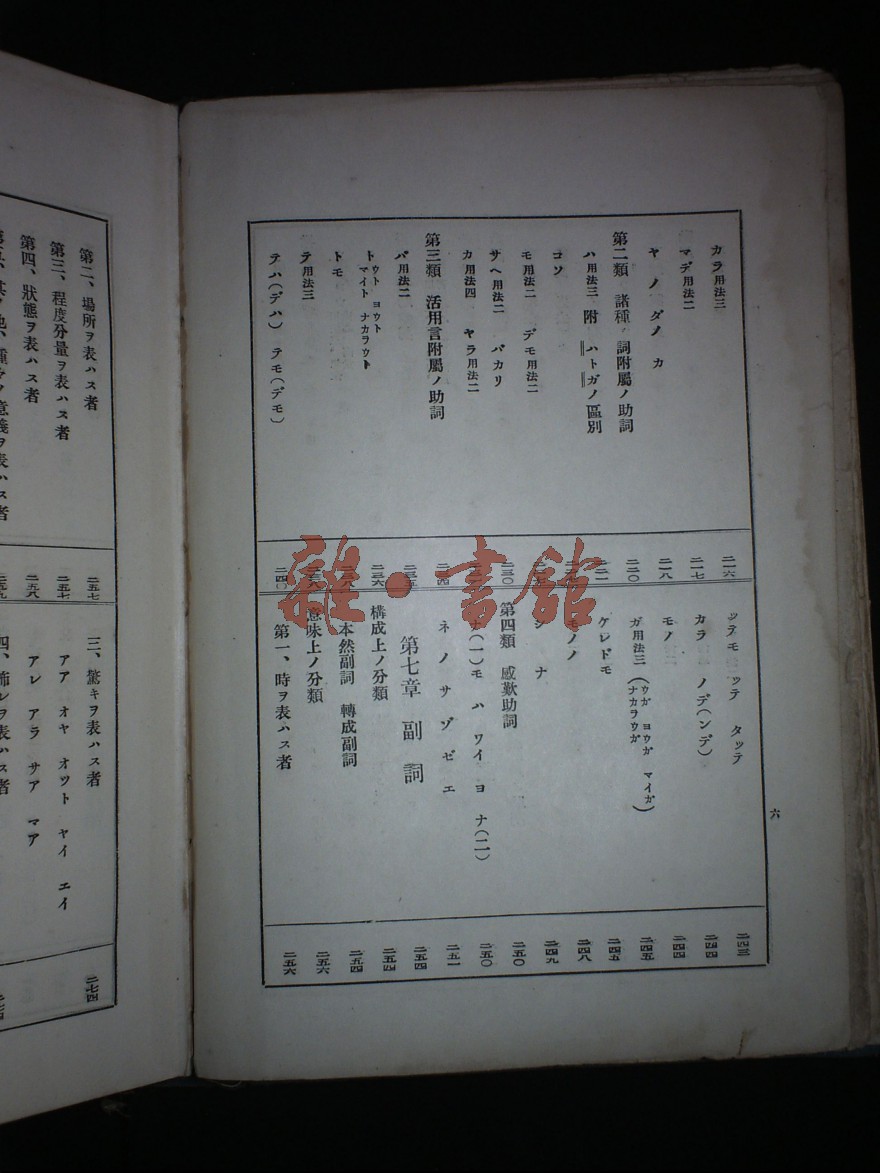 カラ用法三
二一六
マデ用法二
二一七
ヤ ノ ダノ カ
二一八
第二類 諸種ノ詞附屬ノ助詞
二二〇
ハ用法三 附 ハトガノ區別
コソ
モ用法二 デモ用法二
サヘ用法二 バカリ
二三〇
カ用法四 ヤラ用法二
第三類 活用言附屬ノ助詞
二三四
バ用法二
二三五
トウト ヨウト
マイト ナカラウト
二三六
トモ
テ用法三
テハ(デハ) テモ(デモ)
二四〇
ツテモ ツテ タツテ
二四三
カラ ノデ(ンデ)
二四四
モノ
二四四
ガ用法三(ウガ ヨウガ マイガ
ナカラウガ)
二四五
ケレドモ
二四五
モノノ
二四八
シ ナ
二四九
第四類 感歎助詞
二五〇
ナ(一)モ ハ ワイ ヨ ナ(二)
二五〇
ネ ノ サ ゾ ゼ エ
二五一
第七章 副詞
二五四
構成上ノ分類
二五四
本然副詞 轉成副詞
二五四
意味上ノ分類
二五六
第一、時ヲ表ハス者
二五六
六
第二、場所ヲ表ハス者
二五七
第三、程度分量ヲ表ハス者
二五七
第四、狀態ヲ表ハス者
二五八
三、驚キヲ表ハス者
二七四
アア オヤ オツト ヤイ エイ
アレ アラ サア マア
雜·書館